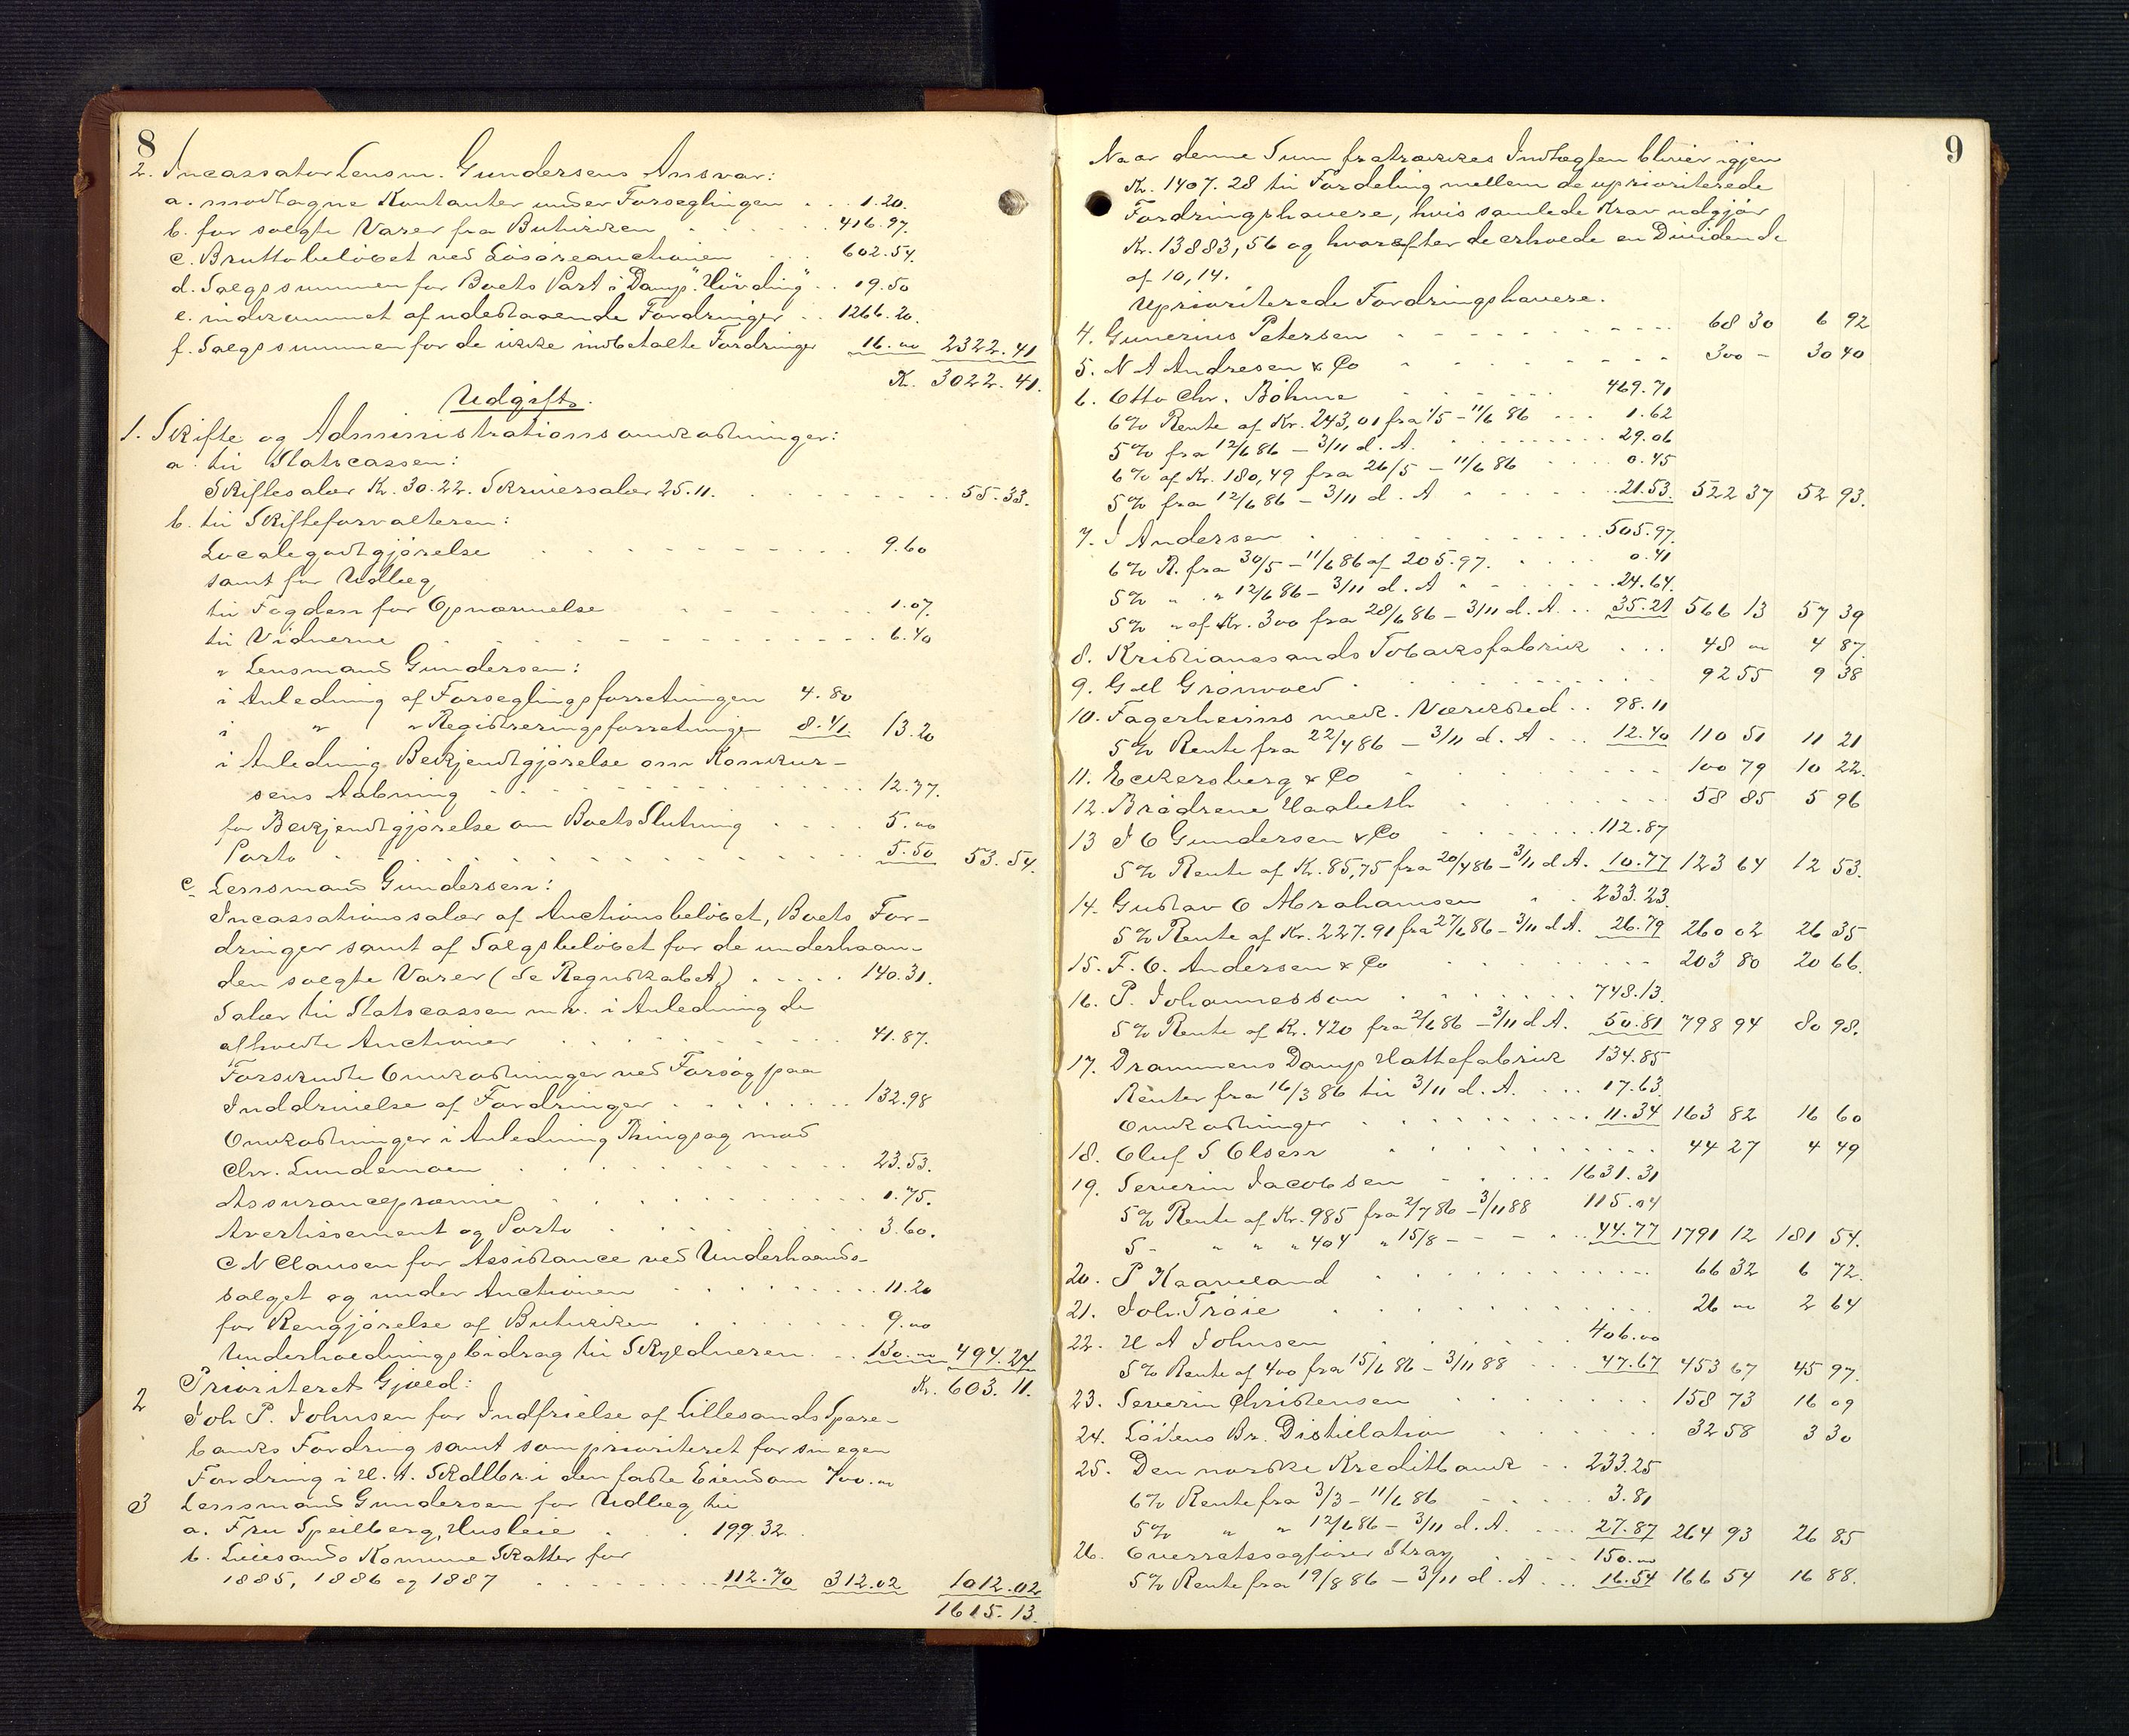 8
2. Incassator Lensm. Gundersens Ansvar:
a. modtagne Kontanter under Forseglingen . . . 1.20.
b. for solgte Varer fra Butikken . . . 416.97.
c. Bruttobeløbet ved Løsøreauctionen . . . 602.54.
d. Salgssummen for Boets Part i Damp. "Høvding" . . 19.50
e. indkommet af udestaaende Fordringer . . 1266.20.
f. Salgssummen for de ikke indbetalte Fordringer 16.00 2322.41
Kr. 3022.41.
Udgift.
1. Skifte og Administrationsomkostninger:
a. til Statscassen:
Skiftesalær Kr. 30.22. Skriversalær 25.11. . . . 55.33.
b. til Skifteforvalteren:
Localegodtgjørelse . . . 9.60
samt for Udlæg
til Fogden for Opnævnelse . . . 1.07.
til Vidnerne . . . 6.40
" Lensmand Gundersen:
i Anledning af Forseglingsforretningen 4.80
i " " Registreringsforretninge 8.41. 13.20
i Anledning Bekjendtgjørelse om Konkur-
sens Aabning . . . 12.77.
for Bekjendtgjørelse om Boets Slutning . . . 5.00
Porto . . . 5.50 53.54.
c. Lensmand Gundersen:
Incassationssalær af Auctionsbeløbet, Boets For-
dringer samt af Salgsbeløbet for de underhaan-
den solgte Varer (se Regnskabet) . . . 140.31.
Salær til Statscassen m.v. i Anledning de
afholdte Auctioner . . . 41.87.
Forskudte Omkostninger ved Forsøg paa
Inddrivelse af Fordringer . . . 132.98
Omkostninger i Anledning Thingsag mod
Chr. Lundemoen . . . 23.53.
Assurancepræmie . . . 1.75.
Avertissement og Porto . . . 3.60.
C N Clausen for Assistance ved Underhaands-
salget og under Auctionen . . . 11.20
for Rengjørelse af Butikken . . . 9.00
Underholdningsbidrag til Skyldneren . . . 130.00 494.24
Kr. 603.11.
2 Prioriteret Gjæld:
Joh P. Johnsen for Indfrielse af Lillesands Spare-
banks Fordring samt som prioriteret for sin egen
Fordring i H. A. Skallbr. i den faste Eiendom 700.00
3 Lensmand Gundersen for Udlæg til
a. Fru Speilberg, Husleie . . . 199.32.
b. Lillesands Komune Skatter for
1885, 1886 og 1887 . . . 112.70 312.02 1012.02
1615.13.
9
Naar denne Sum fratrækkes Indtægten bliver igjen
Kr. 1407.28 til Fordeling mellem de uprioriterede
Fordringshavere, hvis samlede Krav udgjør
Kr. 13883,56 og hvorefter de erholde en Dividende
af 10,14.
Uprioriterede Fordringshavere.
4. Gunerius Petersen . . . 68 30 6 92
5. N A Andresen & Co . . . 300 - 30 40
6. Otto Chr. Böhme . . . 469.71
6% Rente af Kr. 243,01 fra 1/5 - 11/6 86 . . . 1.62
5% fra 12/6 86 - 3/11 d. A. . . . 29.06
6% af Kr. 180,49 fra 26/5 - 11/6 86 . . . 0.45
5% fra 12/6 86 - 3/11 d. A . . . 21.53. 522 37 52 93.
7. I Andersen . . . 505.97.
6% R. fra 30/5 - 11/6 86 af 205.97. . . . 0.41
5% " " 12/6 86 - 3/11 d. A . . . 24.64.
5% " af Kr. 300 fra 28/6 86 - 3/11 d. A. . . 35.21 566 13 57 39
8. Kristianssands Tobaksfabrik . . . 48 00 4 87.
9. G M Grönvold . . . 92 55 9 38
10. Fagerheims mek. Værksted . . 98.11
5% Rente fra 22/4 86 - 3/11 d. A . . . 12.40 110 51 11 21
11. Eckersberg & Co . . . 100 79 10 22.
12. Brødrene Haabeth . . . 58 85 5 96
13 I C Gundersen & Co . . . 112.87
5% Rente af Kr. 85,75 fra 20/4 86 - 3/11 d A. 10.77 123 64 12 53.
14. Gustav O Abrahamsen . . . 233.23.
5% Rente af Kr. 227.91 fra 27/6 86 - 3/11 d A. 26.79 260 02 26 35
15. F. O. Andersen & Co . . . 203 80 20 66.
16. P. Johannesson . . . 748.13.
5% Rente af Kr. 420 fra 2/6 86 - 3/11 d A. 50.81 798 94 80 98.
17. Drammens Damp Hattefabrik 134.85
Renter fra 16/3 86 til 3/11 d. A. . . . 17.63.
Omkostninger . . . 11.34 163 82 16 60
18. Oluf S Olsen . . . 44 27 4 49
19. Severin Jacobsen . . . 1631.31
5% Rente af Kr. 985 fra 2/7 86 - 3/11 88 115.04
5 - " " " 404 " 15/8 - - - . . 44.77 1791 12 181 54.
20. P Kaaveland . . . 66 32 6 72.
21. Joh. Trøie . . . 26 00 2 64
22. H A Johnsen . . . 406.00
5% Rente af 400 fra 15/6 86 - 3/11 88 . . . 47.67 453 67 45 97.
23. Severin Christensen . . . 158 73 16 09
24. Löitens Br. Distilation . . . 32 58 3 30
25. Den norske Kreditbank . . 233.25
6% Rente fra 3/3 - 11/6 86 . . . 3.81
5% " " 12/6 86 - 3/11 d. A. . . . 27.87 264 93 26 85
26. Overretssagfører Stray . . . 150.00
5% Rente fra 19/8 86 - 3/11 d. A . . . 16.54 166 54 16 88.